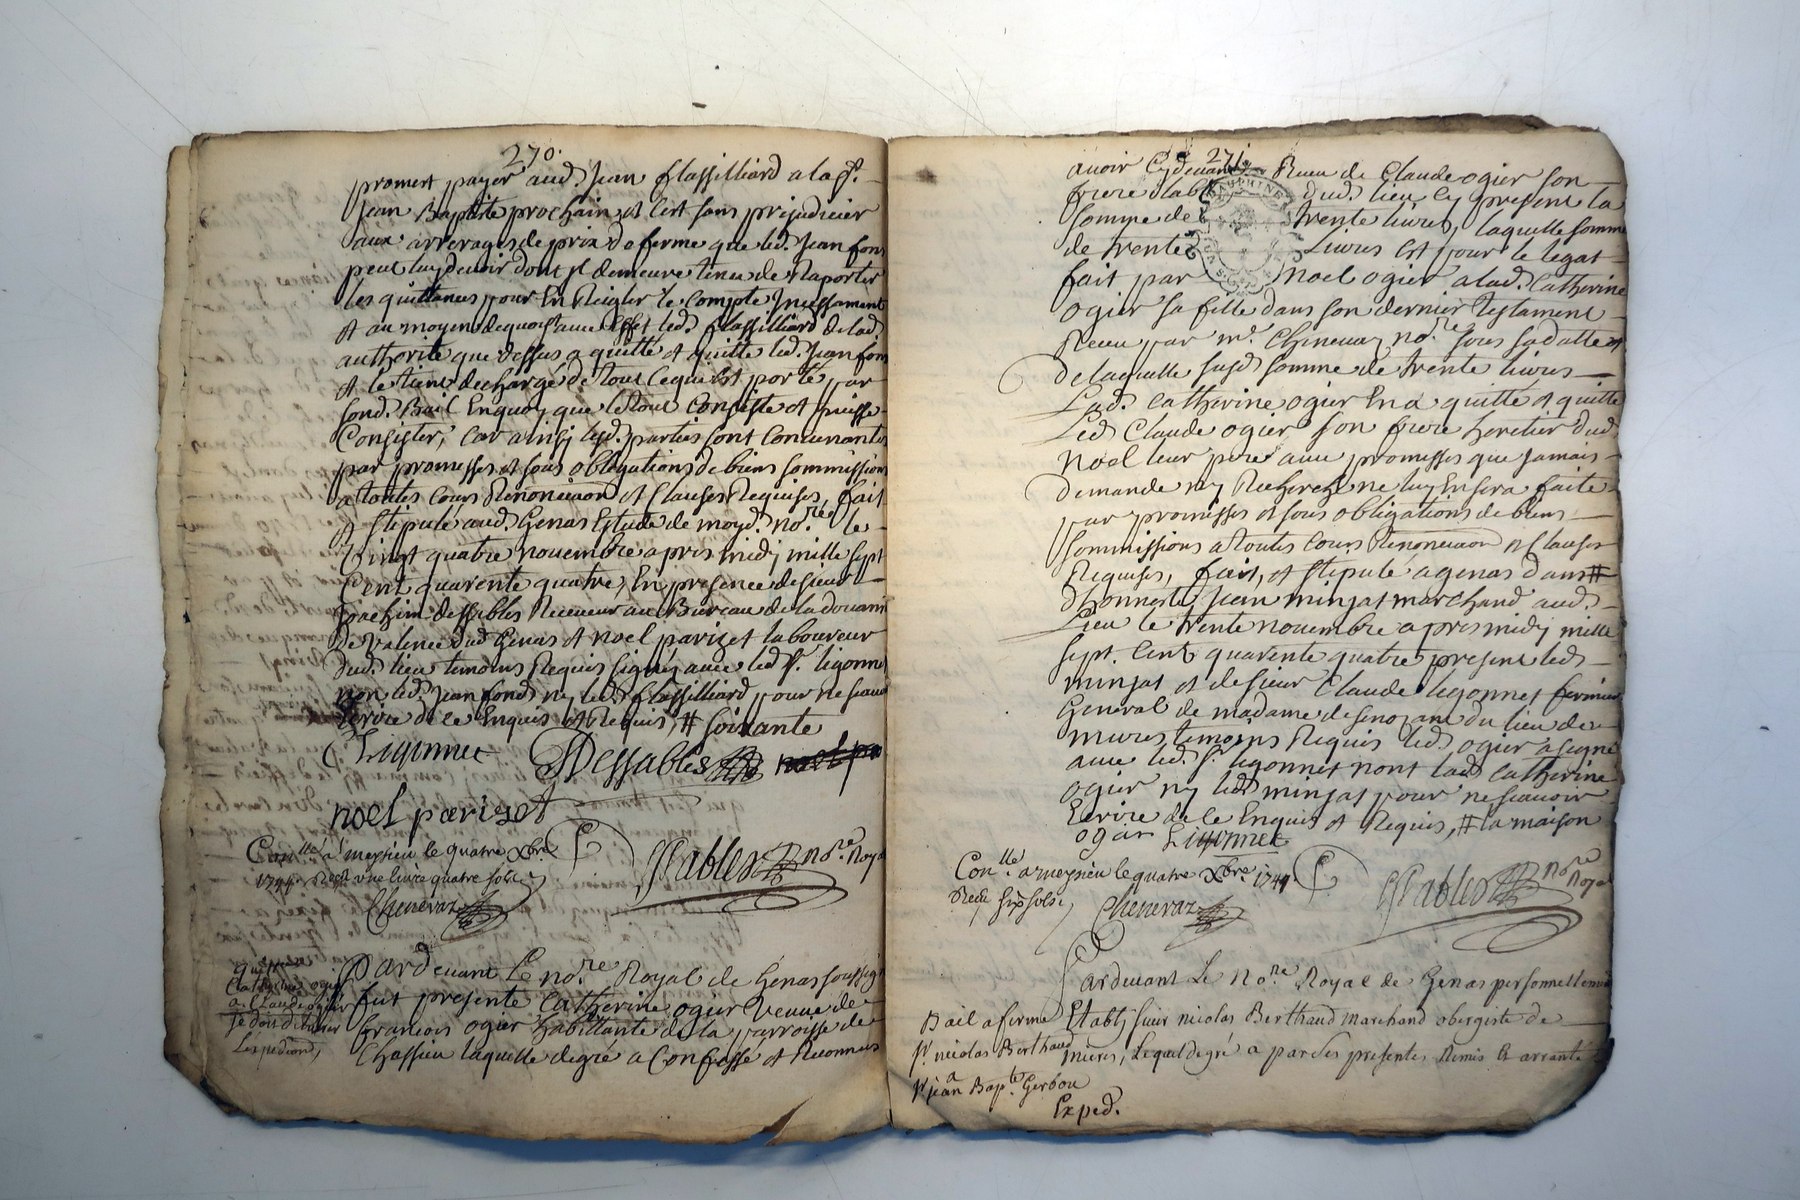 270.
promert payer aud. Jean flassilliard a la st.
Jean Baptiste prochain, et c'est sans prejudicier
aux arrerages de prix da ferme que led. Jean fons
peut luy devoir dont il demeure tenu de Raporter
les quittances pour En Reigler le compte Incessament
et au moyen de quoy led. flassilliard de lad.
authorité que dessus a quitté et quitte led. Jean fons
et le tient dechargé de tout ce qui Est porté par
sond. Bail Enquoy que le tout Consiste et puisse
Consister, car ainsy lesd. parties sont Convenantes
par promesses et sous obligations de biens sommissions
a toutes cours Renonciaon et Clauses Requises, fait
et stipulé aud. Genas Estude de moyd. no.re le
vingt quatre novembre apres midy mille sept
Cent quarente quatre, En presence de sieur
Joachim dessables Receveur au Bureau de la douanne
de valence dud Genas et noel parizet laboureur
dud. lieu temoins Requis signéz avec led. sr. ligonnet
non led. Jean fond ny led. flassilliard pour ne scavoir
Ecrire de ce Enquis et Requis, # soixante
C Ligonnet Dessables
noel parizet
Con.lle a meysieu le quatre Xbre.
1744. Recu une livre quatre sols
Chenevaz
Sablier no.re Royal
quitt.ce
Catherine ogier
a Claude ogier
Expedié
Pardevant Le no.re Royal de Genas soussigné
fut presente Catherine ogier veuve de
francois ogier habittante de la parroisse de
Chassieu laquelle degré a Confessé et Reconnus
271.
avoir Cydevant Receu de Claude ogier son
frere dud. lieu Cy present la
somme de trente livres, laquelle somme
de trente Livres est pour le legat
fait par Noel ogier a lad. Catherine
ogier sa fille dans son dernier testament
Receu par m.e Chenevaz no.re sous sa datte et
de laquelle susd. somme de trente livres
Lad. Catherine ogier En a quitté et quitte
Led. Claude ogier son frere heretier dud.
Noel leur pere avec promesses que jamais
demande ny Recherche ne luy En sera faite
par promesses et sous obligations de biens
sommissions a toutes cours Renonciaon et Clauses
Requises, fait, et stipulé a genas dans #
dhonneste Jean minjat marchand aud.
Lieu le trente novembre apres midy mille
sept. Cent quarente quatre present led.
minjat et de sieur Claude ligonnet fermier
General de madame de senozane du lieu de
mures temoins Requis led. ogier a signé
avec led. sr. ligonnet non lad. Catherine
ogier ny led. minjat pour ne scavoir
Ecrire de ce Enquis et Requis, # la maison
ogier Ligonnet
Con.lle a meysieu le quatre Xbre. 1744
Recu six sols
Chenevaz
Sablier no.re Royal
Bail a ferme
sr nicolas Berthaud
a
sr jean Bap.te Gerbou
Exped.
Pardevant Le No.re Royal de Genas personnellement
Etably sieur nicolas Berthaud marchand obergiste de
mieres, Lequel degré a par des presentes Remis Et arranté